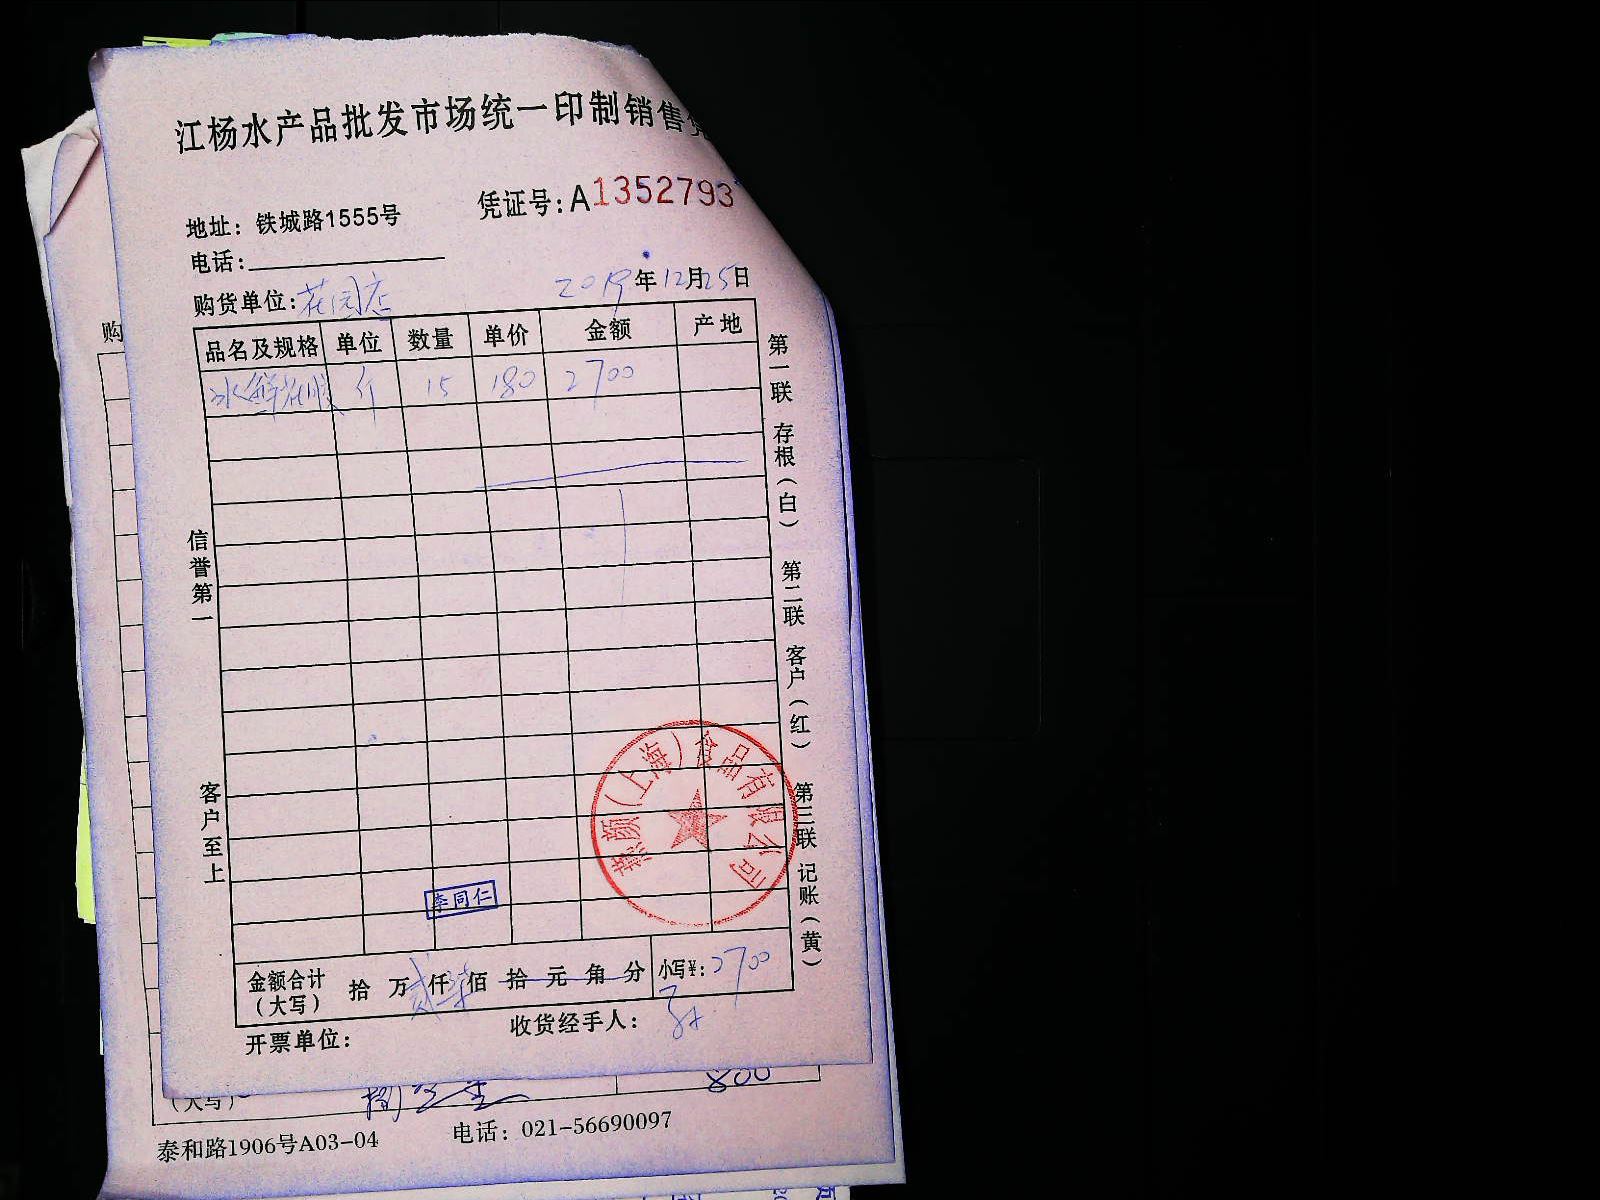 江杨水产品批发市场统一印制销售凭
凭证号:A1352793
地址: 铁城路1555号
电话:
购货单位:花园店 2019年12月25日
品名及规格 单位 数量 单价 金额 产地
冰鲜 斤 15 180 2700
信誉第一
客户至上
第一联 存根(白) 第二联 客户(红) 第三联 记账(黄)
颜(上海)食品有限公司
李同仁
金额合计(大写) 拾 万 贰仟 柒佰 拾 元 角 分 小写¥:2700
开票单位: 收货经手人:
购
(大写) 800
泰和路1906号A03-04 电话: 021-56690097